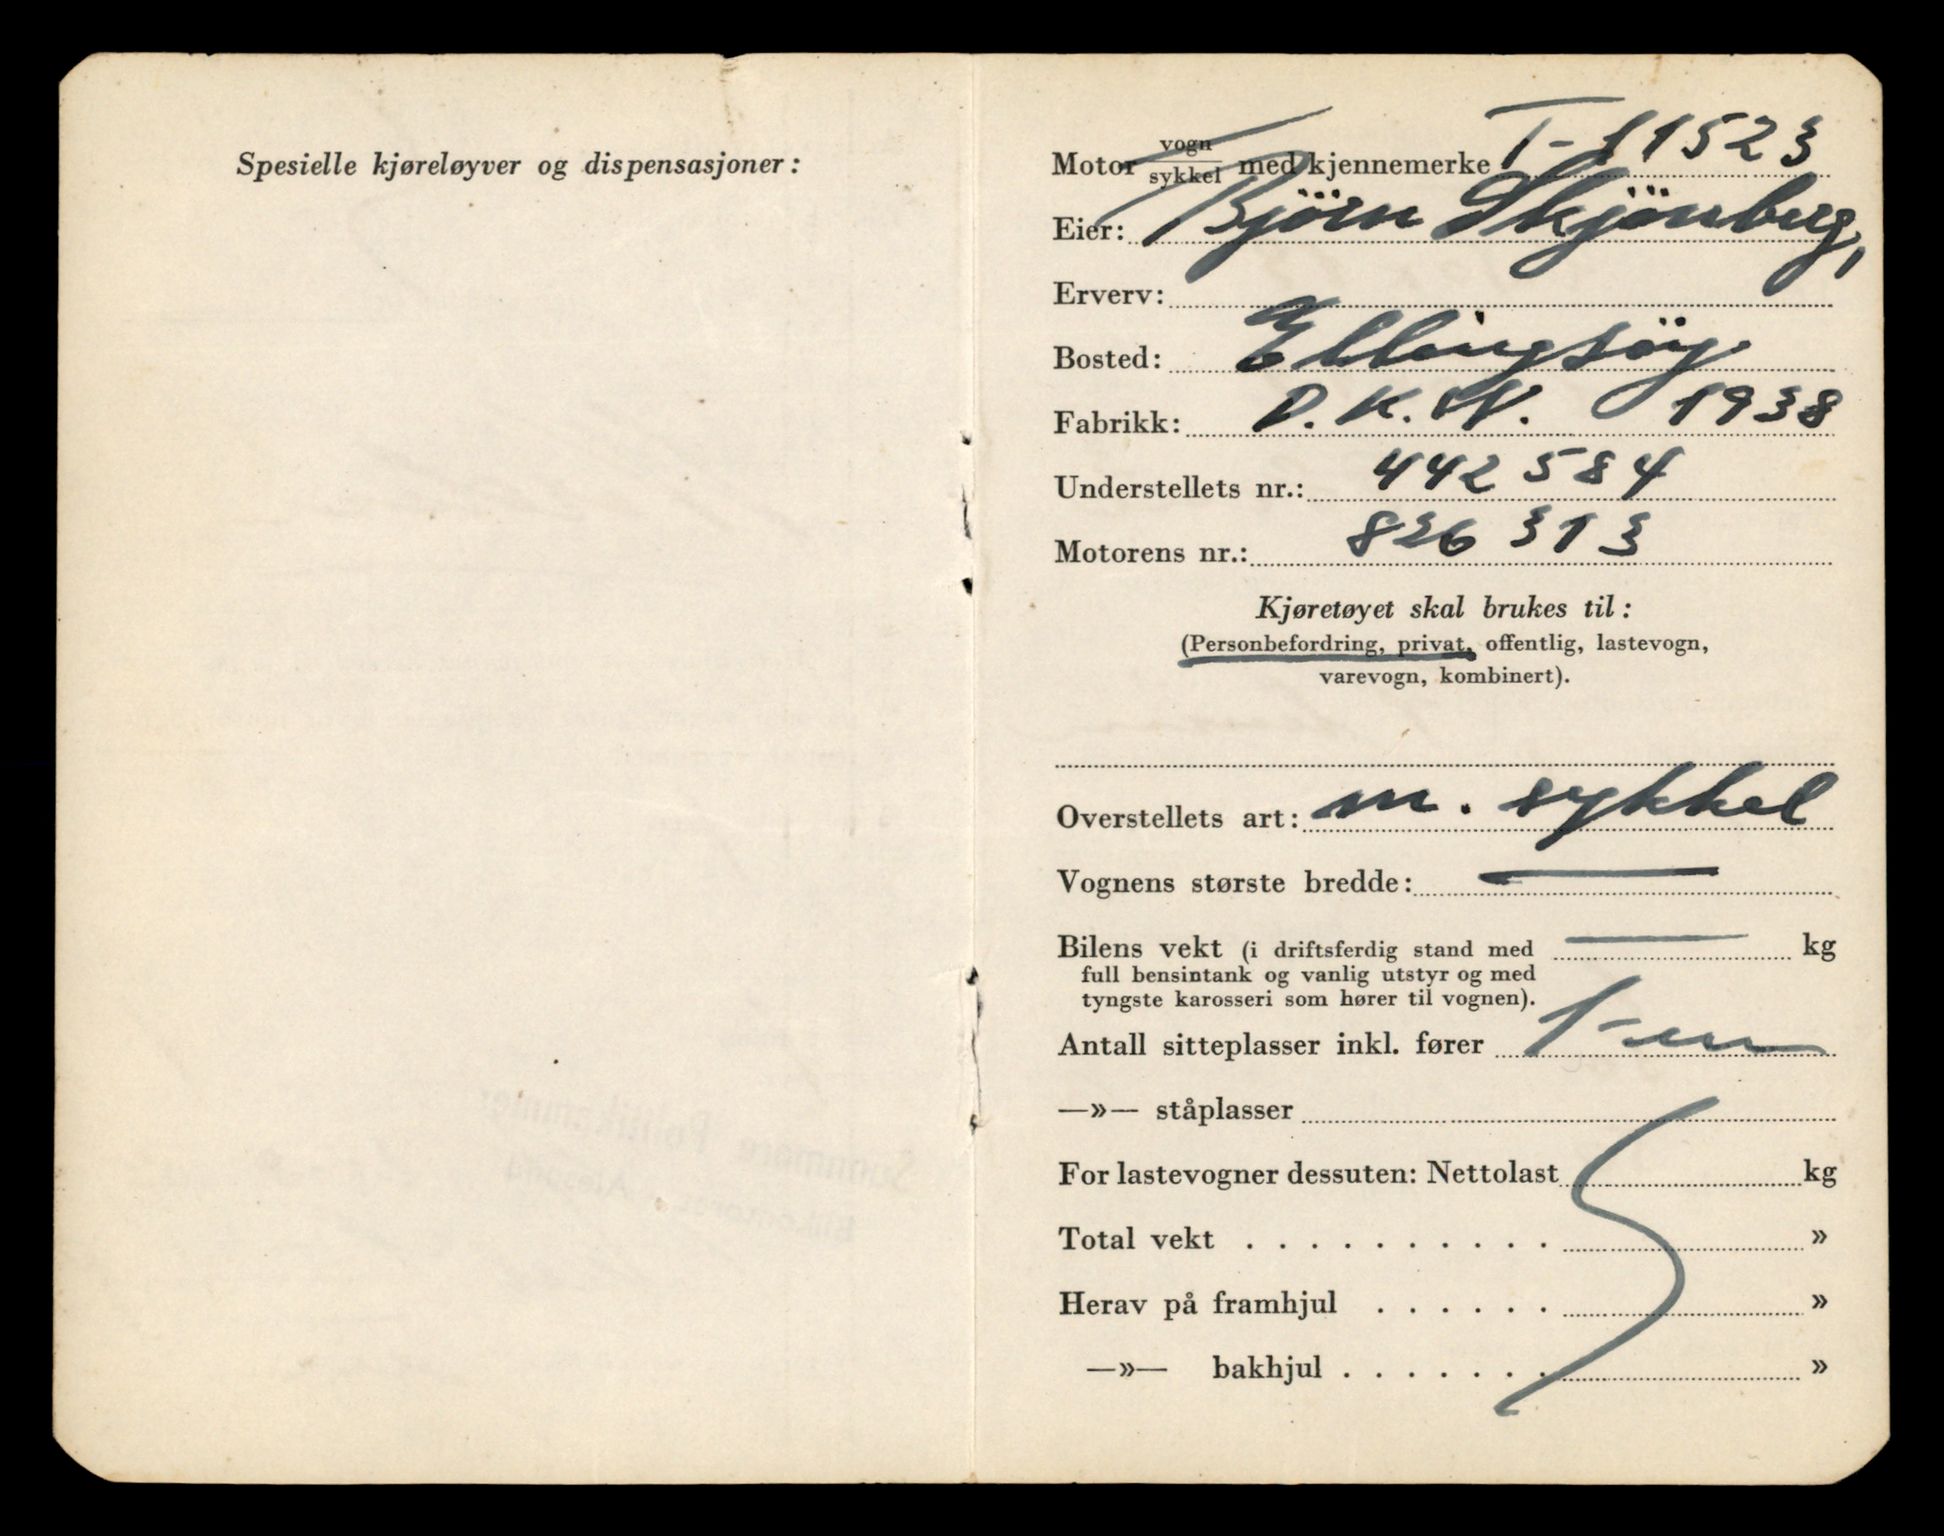 Spesielle kjøreløyver og dispensasjoner:
Motor vogn/sykkel med kjennemerke T-11523
Eier: Björn Skjönberg,
Erverv:
Bosted: Ellingsöy.
Fabrikk: D.K.W. 1938
Understellets nr.: 442584
Motorens nr.: 826313
Kjøretøyet skal brukes til:
(Personbefordring, privat, offentlig, lastevogn,
varevogn, kombinert).
Overstellets art: m. sykkel
Vognens største bredde: —
Bilens vekt (i driftsferdig stand med — kg
full bensintank og vanlig utstyr og med
tyngste karosseri som hører til vognen).
Antall sitteplasser inkl. fører 1-en
—»— ståplasser
For lastevogner dessuten: Nettolast kg
Total vekt . . . . . . . . . . »
Herav på framhjul . . . . . . »
—»— bakhjul . . . . . . . »